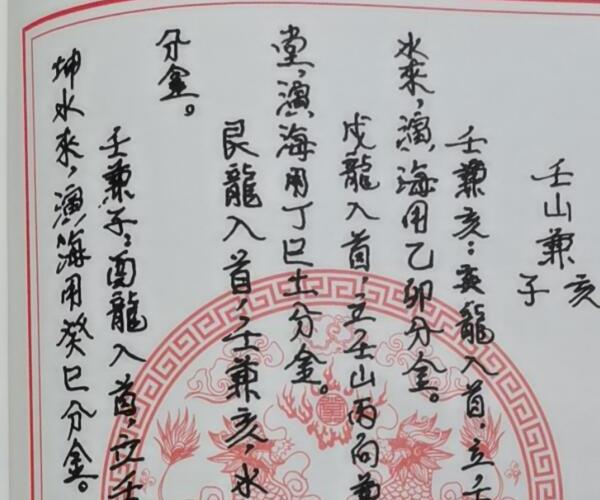 壬山兼亥
子
壬兼亥：亥龍入首，立壬
水來，演海用乙卯分金。
戌龍入首，立壬山丙向兼
堂，演海用丁巳土分金。
艮龍入首，壬兼亥，水
分金。
壬兼子：酉龍入首，立壬
坤水來，演海用癸巳分金。